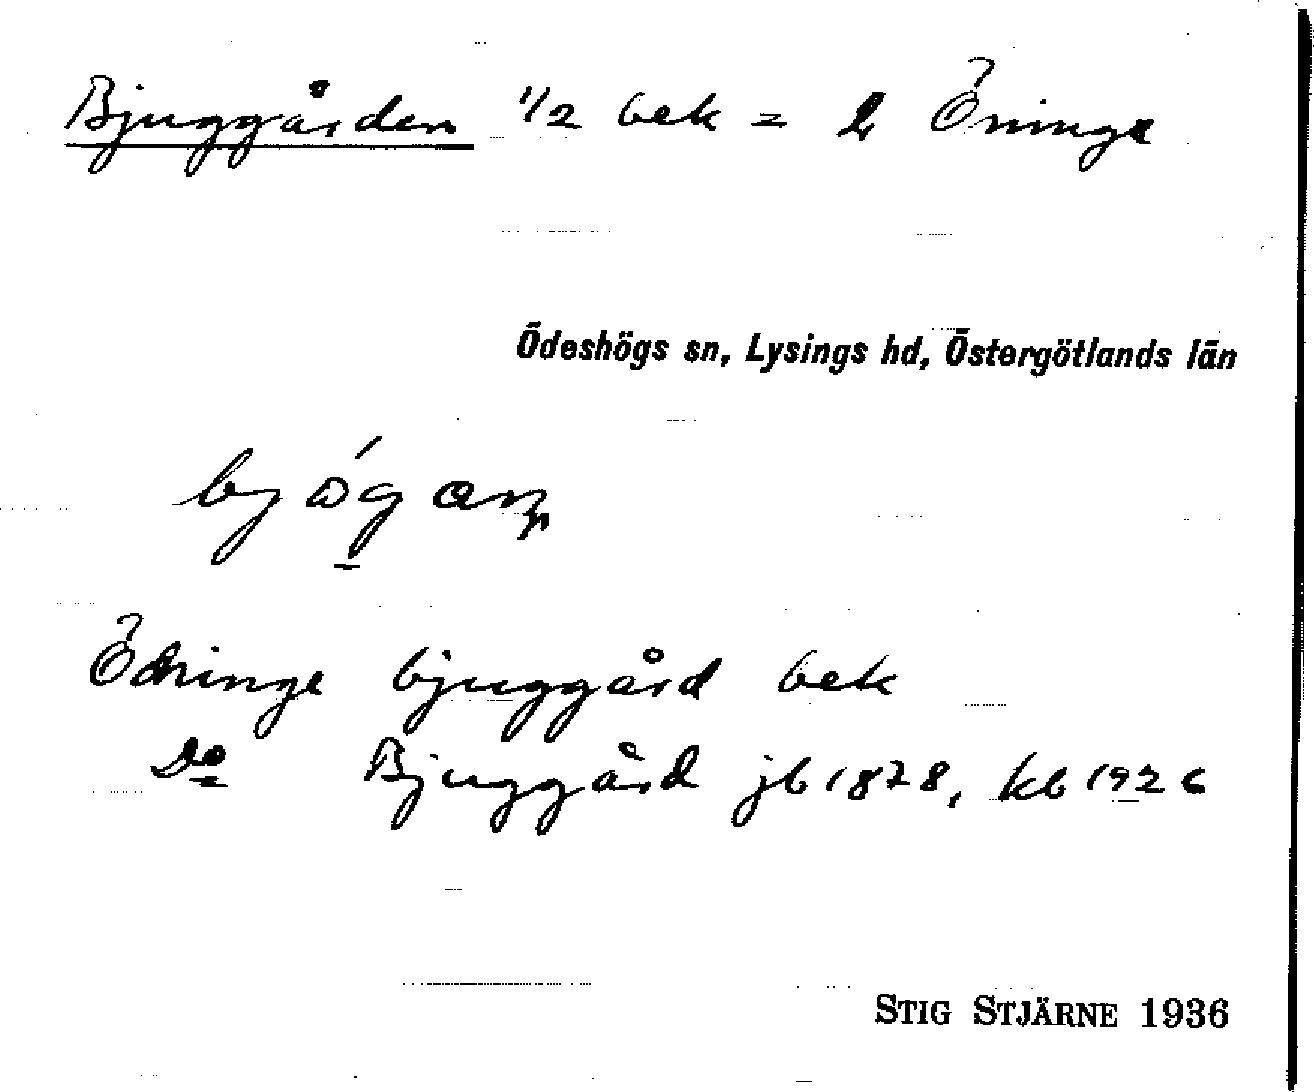 Bjuggården 1/2 bek = 2 Öninge
Ödeshögs sn, Lysings hd, Östergötlands län
Ödninge bjuggård bek
Do Bjuggård jb 1878, kb 1926
STIG STJÄRNE 1936